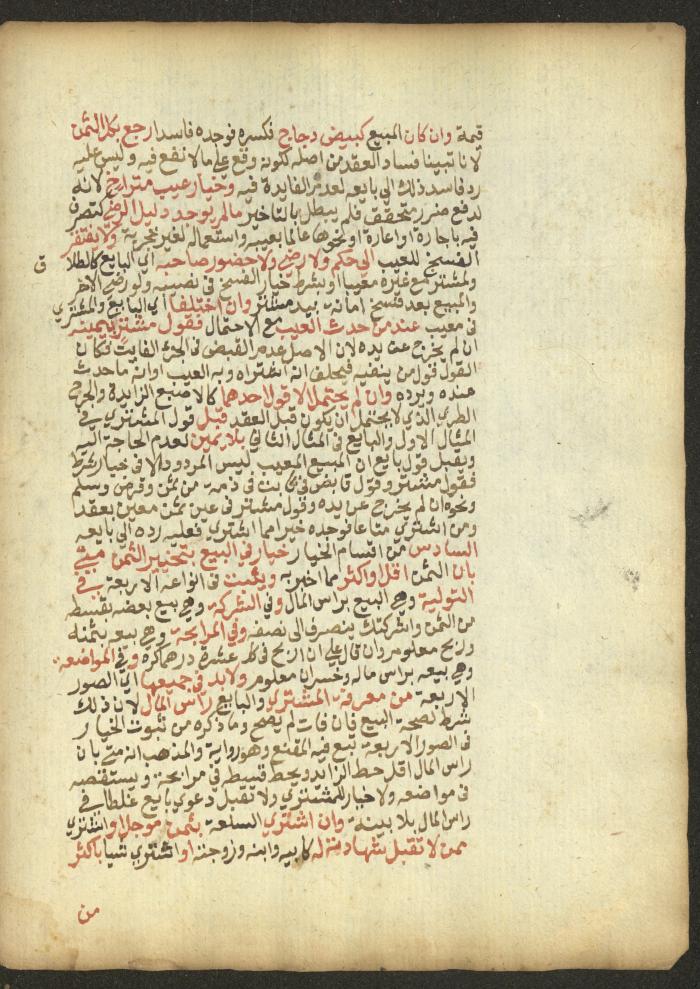 قيمة وان كان المبيع كبيض دجاج فكسره فوجده فاسدا رجع بكل الثمن
لانا تبينا فساد العقد من اصله لكونه وقع على ما لا نفع فيه وليس عليه
رد فاسد ذلك الى بايعه لعدم الفايدة فيه وخيار عيب متراخ لانه
لدفع ضرر متحقق فلم يبطل بالتاخير ما لم يوجد دليل الرضى كتصرف
فيه باجارة او اعارة او نحوها عالما بعيبه واستعماله لغير تجربة ولا يفتقر
الفسخ للعيب الى حكم ولا رضى ولا حضور صاحبه اي البايع كالطلا
ق
ولمشتر مع غيره معيبا او بشرط خيار الفسخ في نصيبه ولو رضي الاخر
والمبيع بعد فسخ امانة بيد مشتر وان اختلفا اي البايع والمشتري
في معيب عند من حدث العيب مع الاحتمال فقول مشتر بيمينه
ان لم يخرج عن يده لان الاصل عدم القبض في الجزء الفايت فكان
القول قول من ينفيه فيحلف انه اشتراه وبه العيب او انه ما حدث
عنده ويرده وان لم يحتمل الا قول احدهما كالاصبع الزايدة والجرح
الطري الذي لا يحتمل ان يكون قبل العقد قبل قول المشتري في
المثال الاول والبايع في المثال الثاني بلا يمين لعدم الحاجة اليه
ويقبل قول بايع ان المبيع المعيب ليس المردود الا في خيار شرط
فقول مشتر وقول قابض في ثابت في ذمة من ثمن وقرض وسلم
ونحوه ان لم يخرج عن يده وقول مشتر في عين ثمن معين بعقد
ومن اشترى متاعا فوجده خيرا مما اشترى فعليه رده الى بايعه
السادس من اقسام الخيار خيار في البيع بتخبير الثمن متى
بان الثمن اقل او اكثر مما اخبر به ويثبت في انواعه الاربعة في
التولية وهي البيع براس المال وفي الشركة وهي بيع بعضه بقسطه
من الثمن واشركتك ينصرف الى نصفه وفي المرابحة وهي بيعه بثمنه
وربح معلوم وان قال على ان اربح في كل عشرة درهما كره وفي المواضعة
وهي بيعه براس ماله وخسران معلوم ولا بد في جميعها اي الصور
الاربعة من معرفة المشتري والبايع راس المال لان ذلك
شرط لصحة البيع فان فات لم يصح وما ذكره من ثبوت الخيار
في الصور الاربعة تبع فيه المقنع وهو رواية والمذهب انه متى بان
راس المال اقل حط الزايد ويحط قسطه في مرابحة وينقصه
في مواضعة ولا خيار للمشتري ولا تقبل دعوى بايع غلطا في
راس المال بلا بينة وان اشترى السلعة بثمن موجل او اشترى
ممن لا تقبل شهادته له كابيه وابنه وزوجته او اشترى شيا باكثر
من